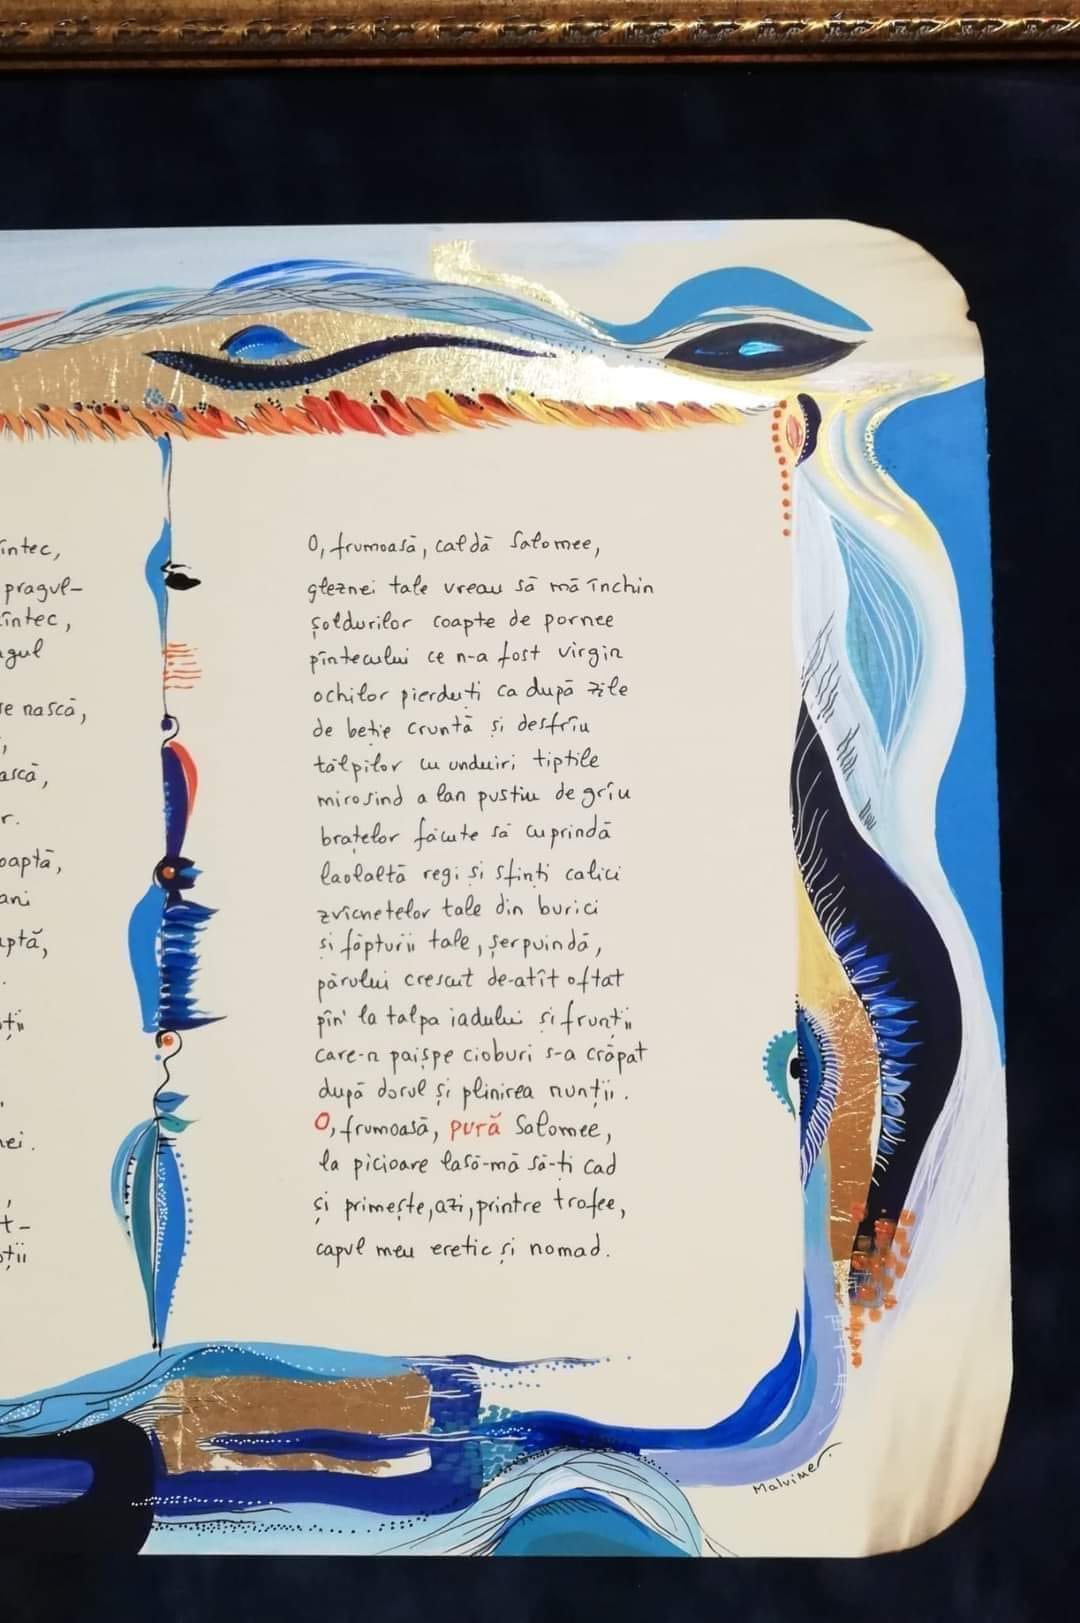 întec,
pragul-
cîntec,
agul
se nască,
ască,
r.
oaptă,
ani
aptă,
oții
nei.
t-
oții
O, frumoasă, caldă Salomee,
gleznei tale vreau să mă închin
șoldurilor coapte de pornee
pîntecului ce n-a fost virgin
ochilor pierduți ca după zile
de beție cruntă și desfrîu
tălpilor cu unduiri tiptile
mirosind a lan pustiu de grîu
brațelor făcute să cuprindă
laolaltă regi și sfinți calici
zvîcnetelor tale din burici
și făpturii tale, șerpuindă,
părului crescut de-atît oftat
pîn' la talpa iadului și frunții
care-n paișpe cioburi s-a crăpat
după dorul și plinirea nunții.
O, frumoasă, pură Salomee,
la picioare lasă-mă să-ți cad
și primește, azi, printre trofee,
capul meu eretic și nomad.